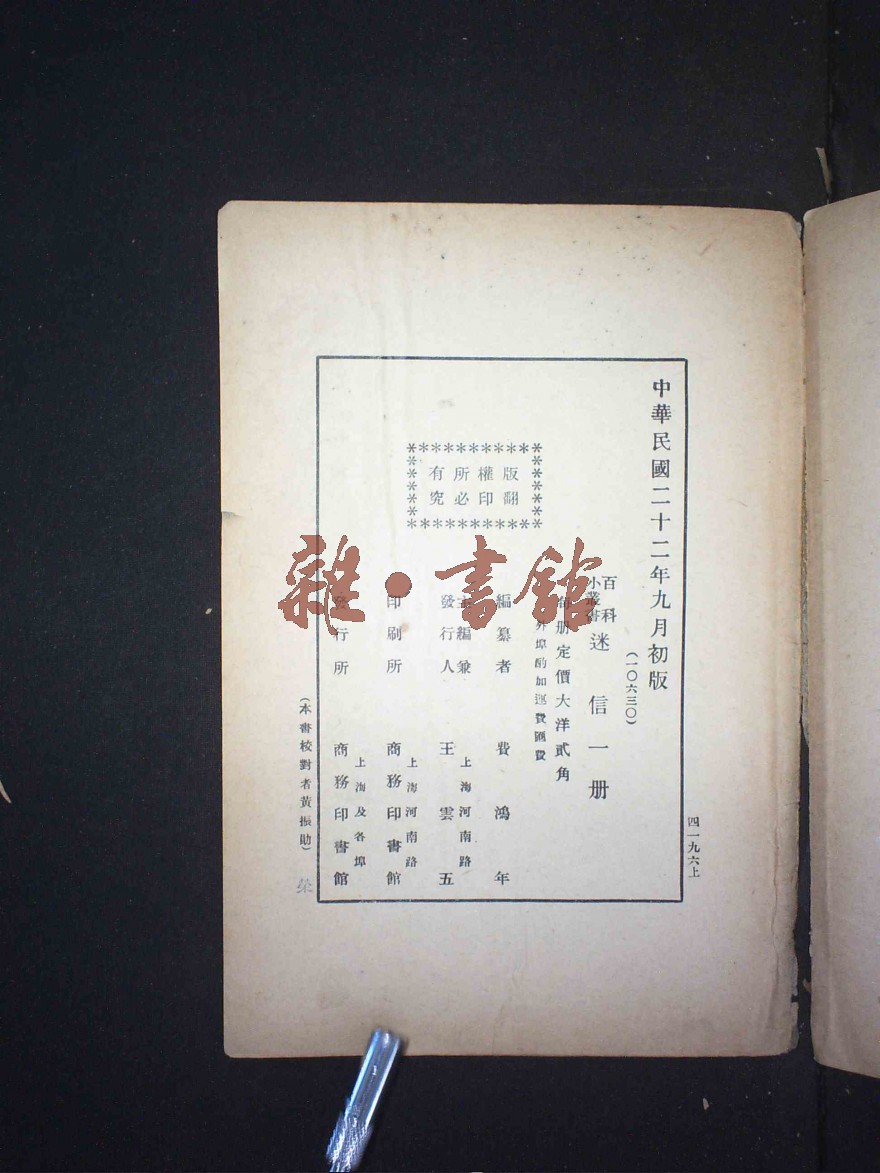 四一九六上
中華民國二十二年九月初版
(一〇六三〇)
百科
小叢書
迷信一册
每册定價大洋貳角
外埠酌加運費匯費
版權所有
翻印必究
編纂者 費鴻年
上海河南路
主編兼
發行人 王雲五
上海河南路
印刷所 商務印書館
上海及各埠
發行所 商務印書館
(本書校對者黃振勛)
雜·書館